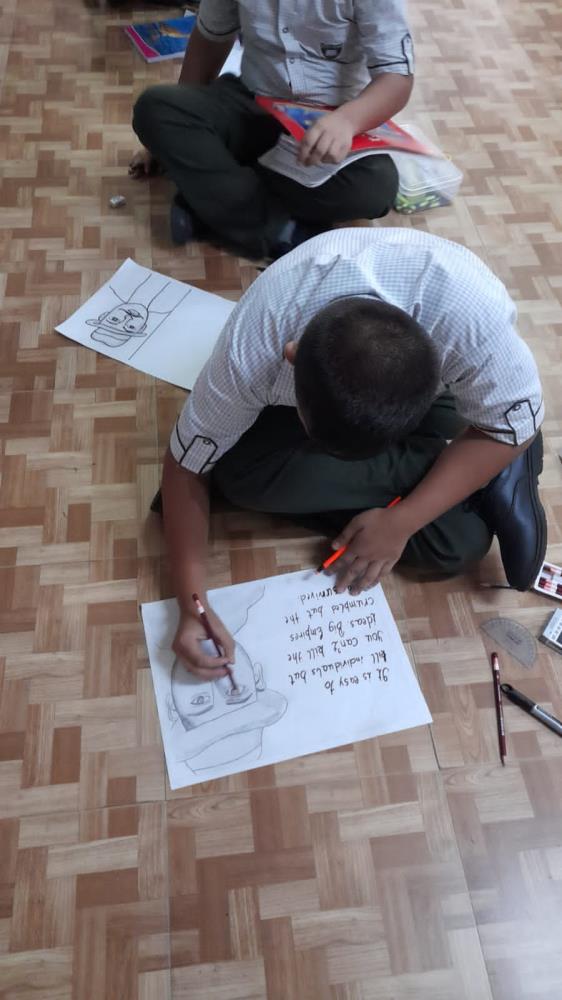 It is easy to
kill individuals but
you can't kill the
ideas Big Empires
crumbled but the
survived.